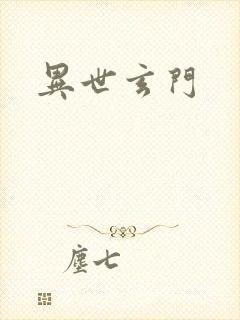 異世玄門
塵七